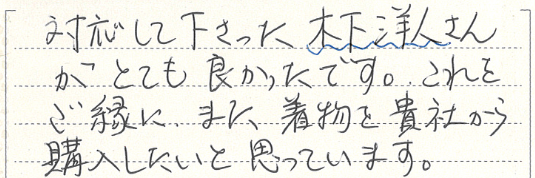 対応して下さった木下洋人さん
がとても良かったです。これを
ご縁に、また、着物を貴社から
購入したいと思っています。